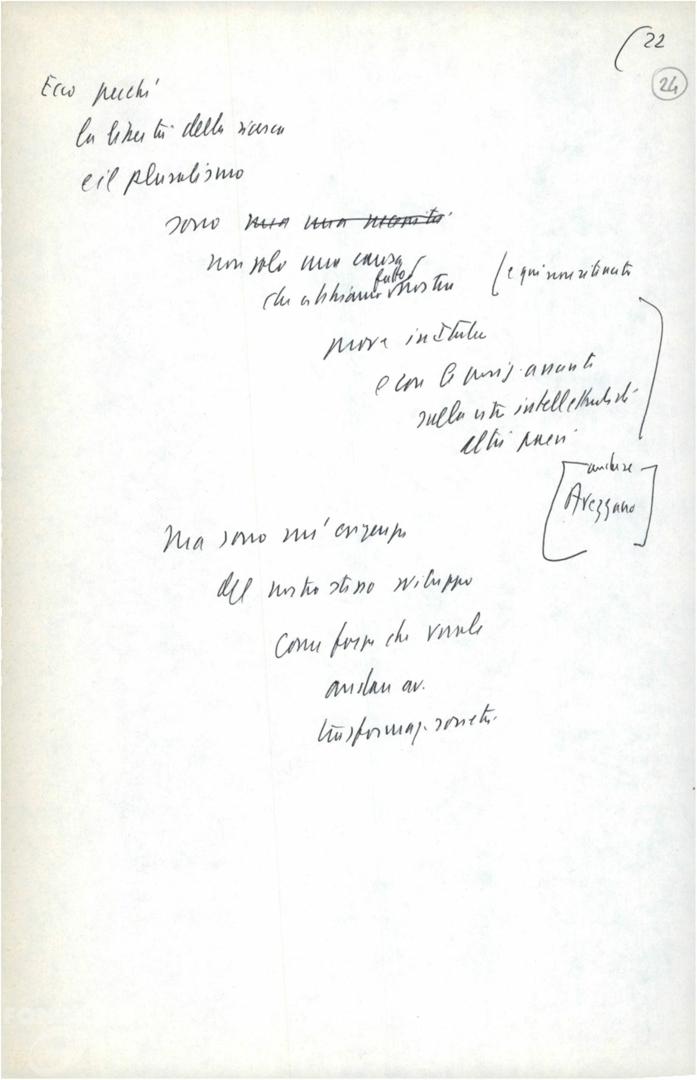 22
24
Ecco perché
la libertà della ricerca
e il pluralismo
sono una una necessità
non solo una causa
che abbiamo fatto nostra
(e qui non ritirata
prova in Italia
e con le posiz. avanti
sulla vita intellettuale di
altri paesi
anche
Avezzano
Ma sono un' esigenza
del nostro stesso sviluppo
come forza che vuole
andare av.
trasformaz. società